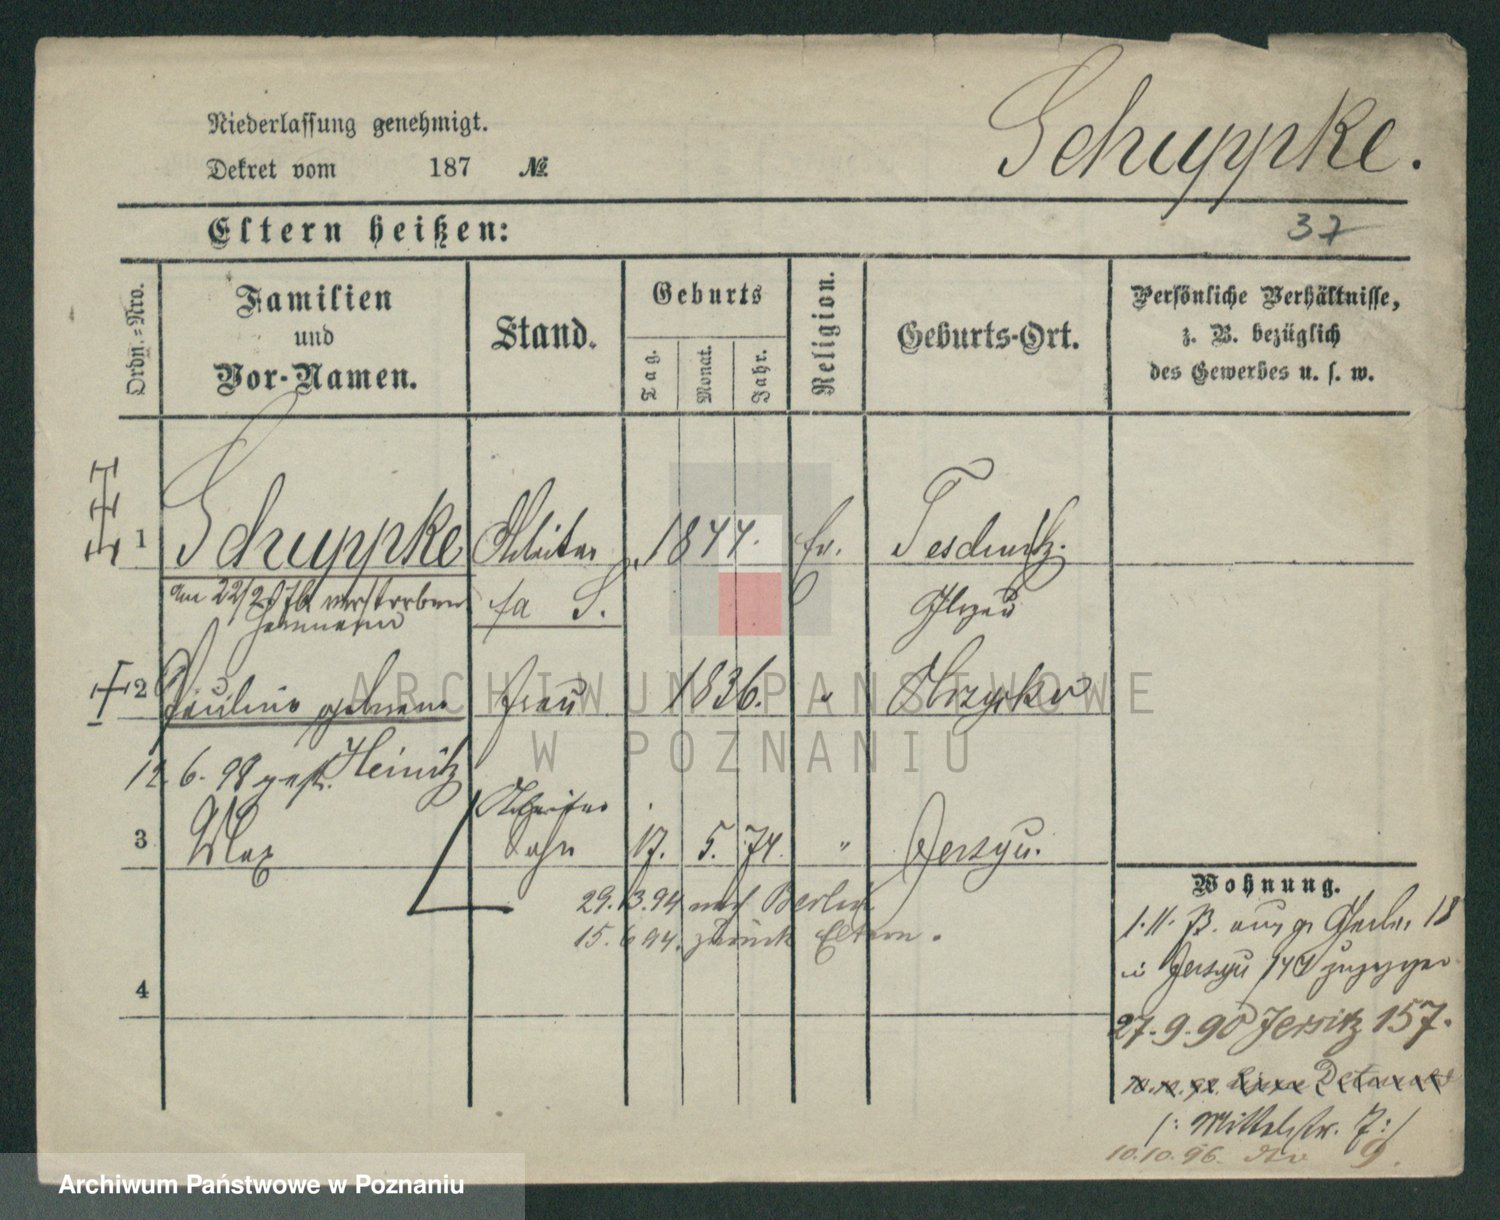 Niederlassung genehmigt.
Dekret vom 187 №
Schuppke.
Eltern heißen:
37
Ordn.-Nro.
Familien
und
Vor-Namen.
Stand.
Geburts
Tag.
Monat.
Jahr.
Religion.
Geburts-Ort.
Persönliche Verhältnisse,
z. B. bezüglich
des Gewerbes u. s. w.
1 Schuppke Arbeiter 1844. Ev.
am 22/2 verstorben
Hermann
2 Pauline geborene Frau 1836. " Obrzycko
12.6.98 gest. Heinitz
Arbeiter
3 Max Sohn 17. 5. 74. " Jerzyce.
29.3.94 nach Berlin
15.6.94. zurück Eltern.
4
Wohnung.
18
Jerzyce 144
27.9.90 Jersitz 157.
/: Mittelstr. 7:/
10.10.96. 9.
ARCHIWUM PAŃSTWOWE
W POZNANIU
Archiwum Państwowe w Poznaniu